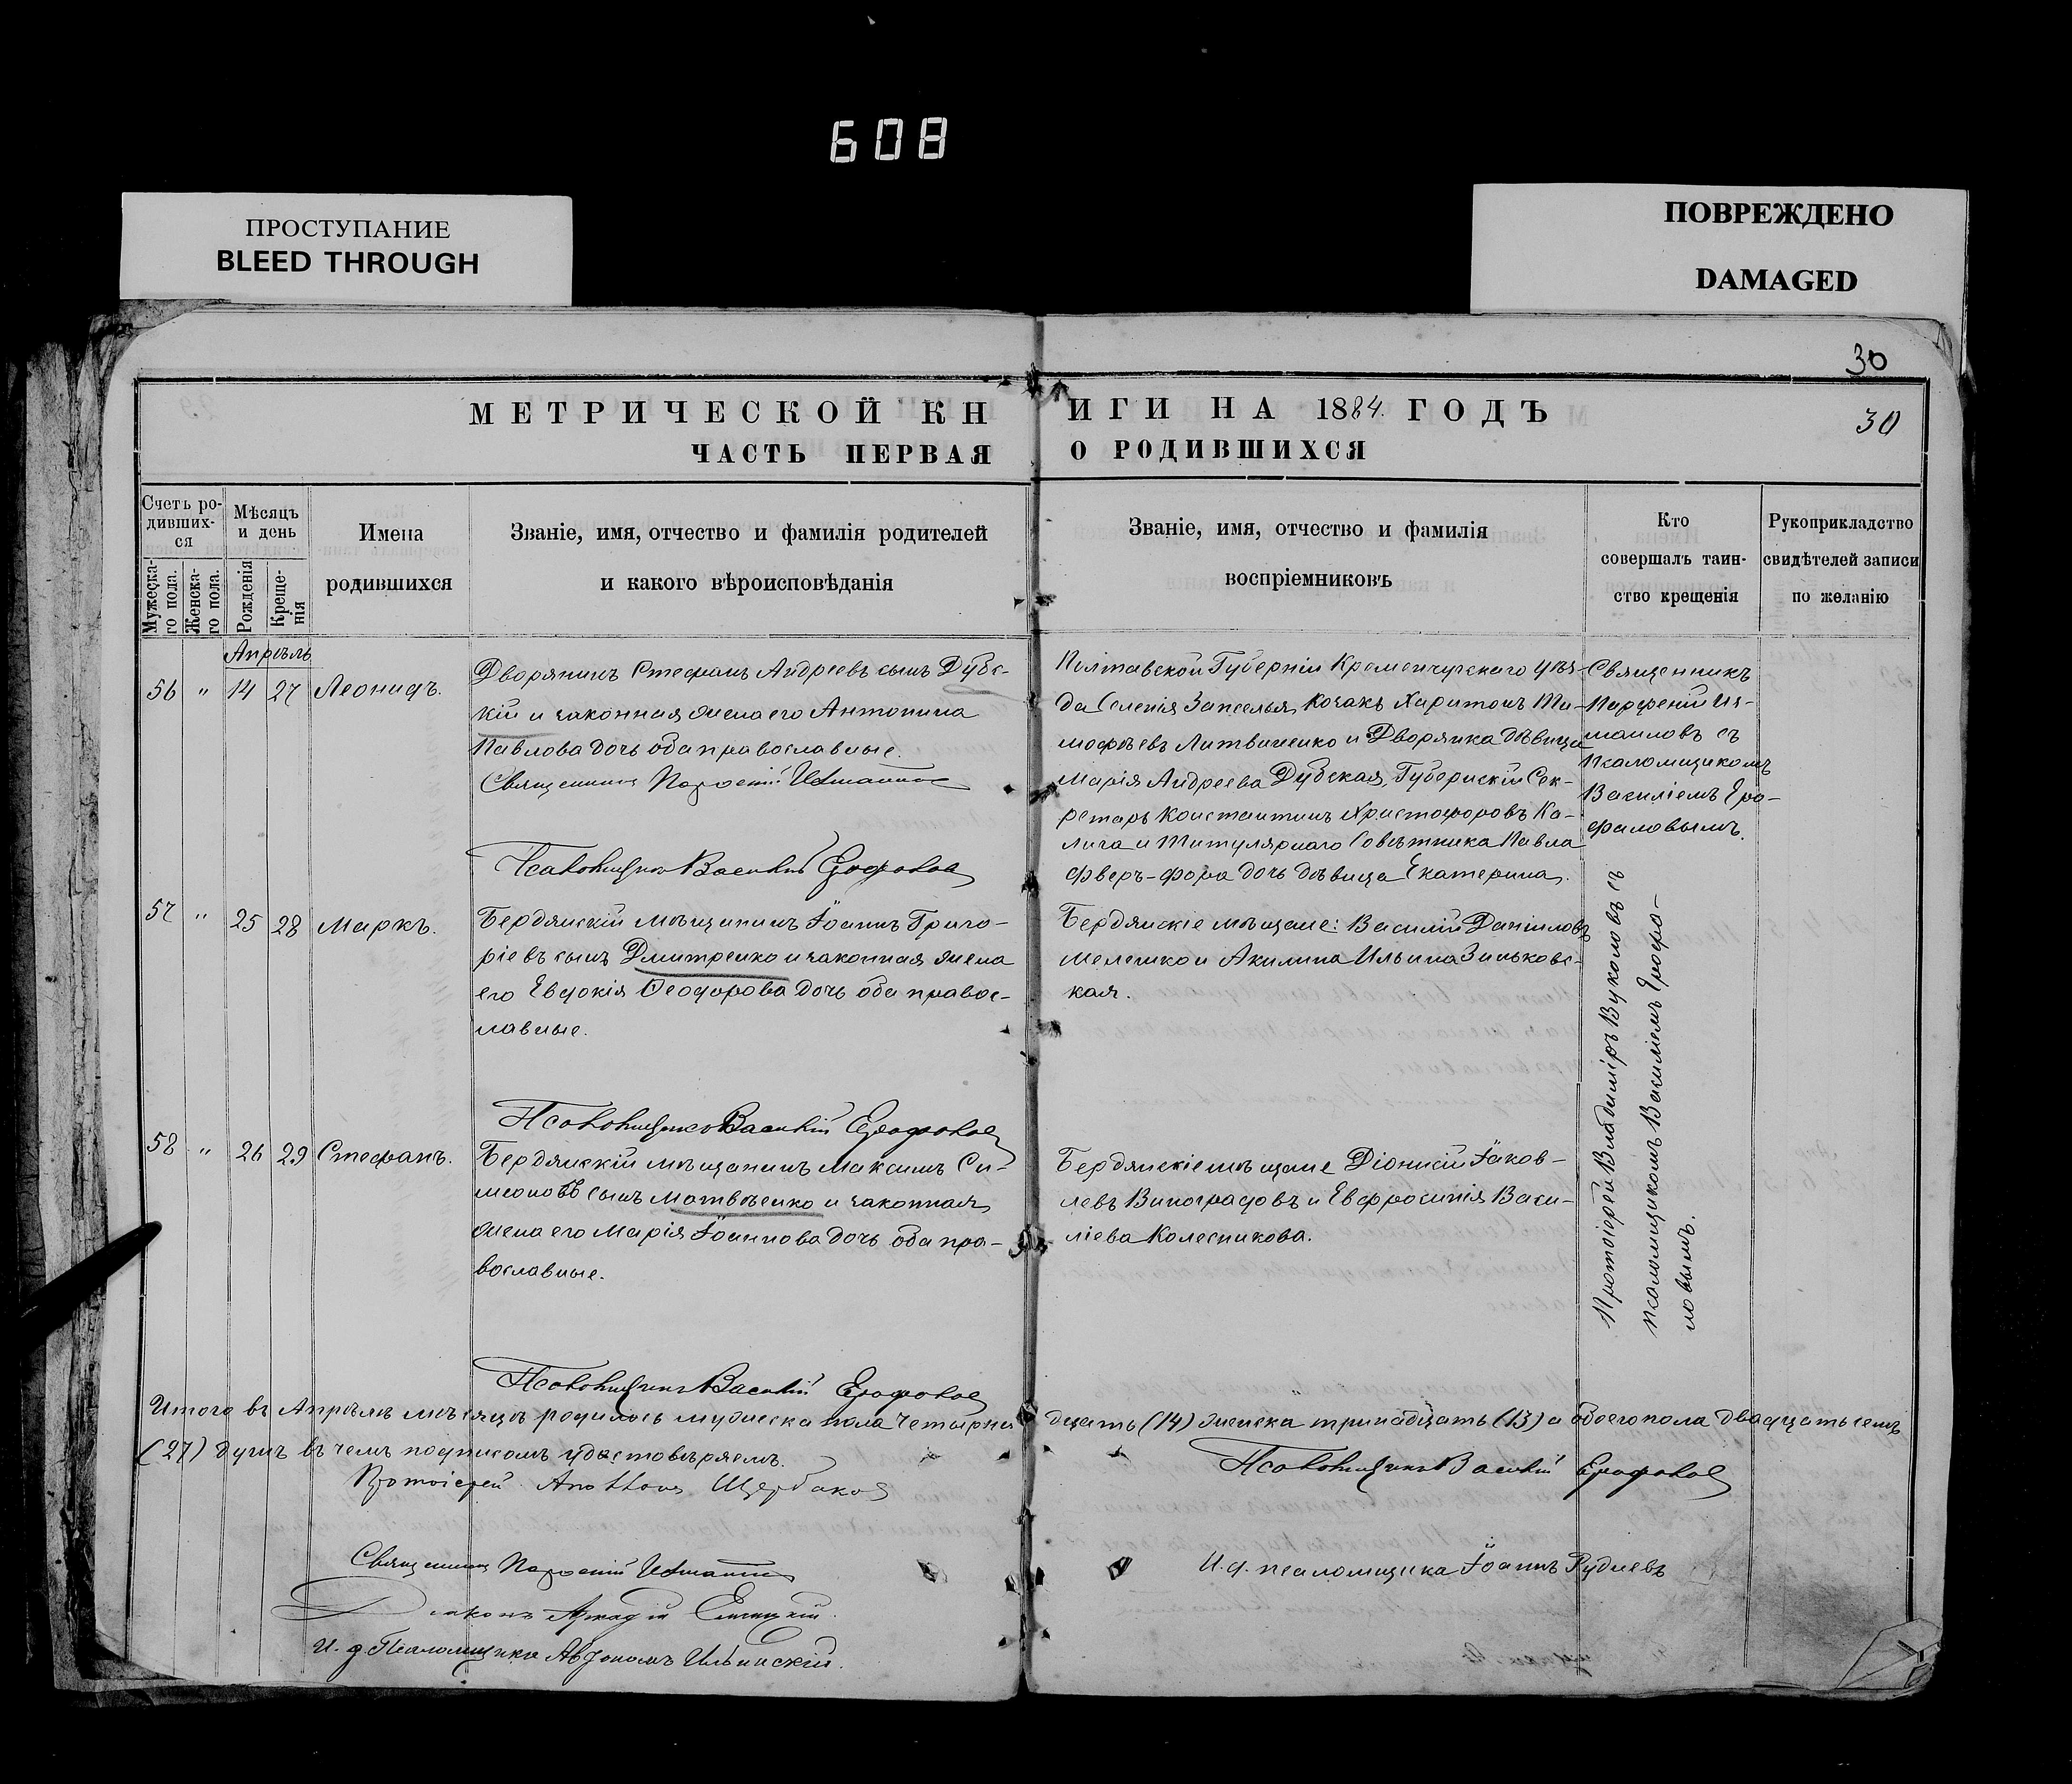 608
ПРОСТУПАНИЕ
BLEED THROUGH
ПОВРЕЖДЕНО
DAMAGED
30
МЕТРИЧЕСКОЙ КНИГИ НА 1884 ГОДЪ
30
ЧАСТЬ ПЕРВАЯ О РОДИВШИХСЯ
Счетъ ро-
дивших-
ся
Мужеска-
го пола.
Женска-
го пола.
Мѣсяцъ
и день
Рожденія
Креще-
нія
Имена
родившихся
Званіе, имя, отчество и фамилія родителей
и какого вѣроисповѣданія
Званіе, имя, отчество и фамилія
воспріемниковъ
Кто
совершалъ таин-
ство крещенія
Рукоприкладство
свидѣтелей записи
по желанію
Апрѣль
56 " 14 27 Леонидъ.
Дворянинъ Стефанъ Андреевъ сынъ Дубс-
кій и законная жена его Антонина
Павлова дочь оба православные.
Священникъ Парѳеній
Псаломщикъ Василій Ерофаловъ
Полтавской Губерніи Кременчугскаго уѣз-
да Селенія Запселья, козакъ Харитонъ Ти-
мофѣевъ Литвиненко и Дворянка дѣвица
Марія Андреева Дубская, Губернскій Сек-
ретарь Константинъ Христофоровъ Ка-
лига и Титулярнаго Совѣтника Павла
Фверъ-фора дочь дѣвица Екатерина.
Священникъ
Парфеній Из-
маиловъ съ
псаломщикомъ
Василіемъ Еро-
фаловымъ.
57 " 25 28 Маркъ.
Бердянскій мѣщанинъ Іоаннъ Григо-
ріевъ сынъ Дмитренко и законная жена
его Евдокія Ѳеодорова дочь оба правос-
лавные.
Псаломщикъ Василій Ерофаловъ
Бердянскіе мѣщане: Василій Даніиловъ
Мелешко и Акилина Ильина Зиньковс-
кая.
Протоіерей Владиміръ Вуколовъ съ
псаломщикомъ Василіемъ Ерофа-
ловымъ.
58 " 26 29 Стефанъ.
Бердянскій мѣщанинъ Максимъ Си-
меоновъ сынъ Матвѣенко и законная
жена его Марія Іоаннова дочь оба пра-
вославные.
Псаломщикъ Василій Ерофаловъ
Бердянскіе мѣщане Діонисій Іаков-
левъ Виноградовъ и Евфросинія Васи-
ліева Колесникова.
Итого въ Апрѣлѣ мѣсяцѣ родилось мужеска пола четырнадцать (14) женска тринадцать (13) а обоего пола двадцать семь
(27) душъ въ чемъ подписомъ удостовѣряемъ.
Протоіерей Щербаковъ
Псаломщикъ Василій Ерофаловъ
Священникъ Парѳеній
И. д. псаломщика Іоаннъ Рудневъ
Діаконъ Аркадій
И. д. Псаломщика Автономъ Ильинскій.